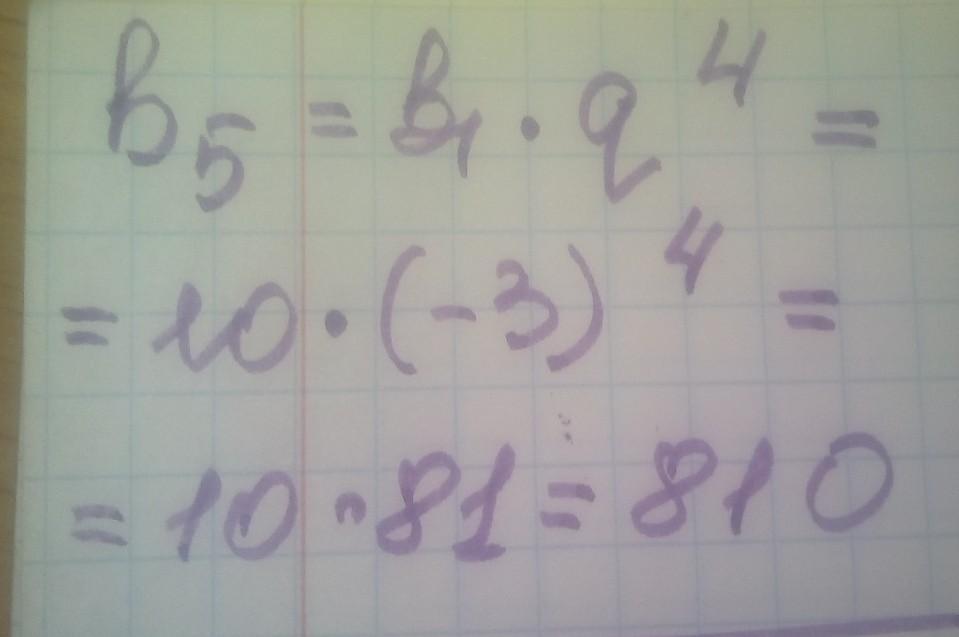 b₅ = b₁ · q⁴ =
= 10 · (-3)⁴ =
= 10 · 81 = 810